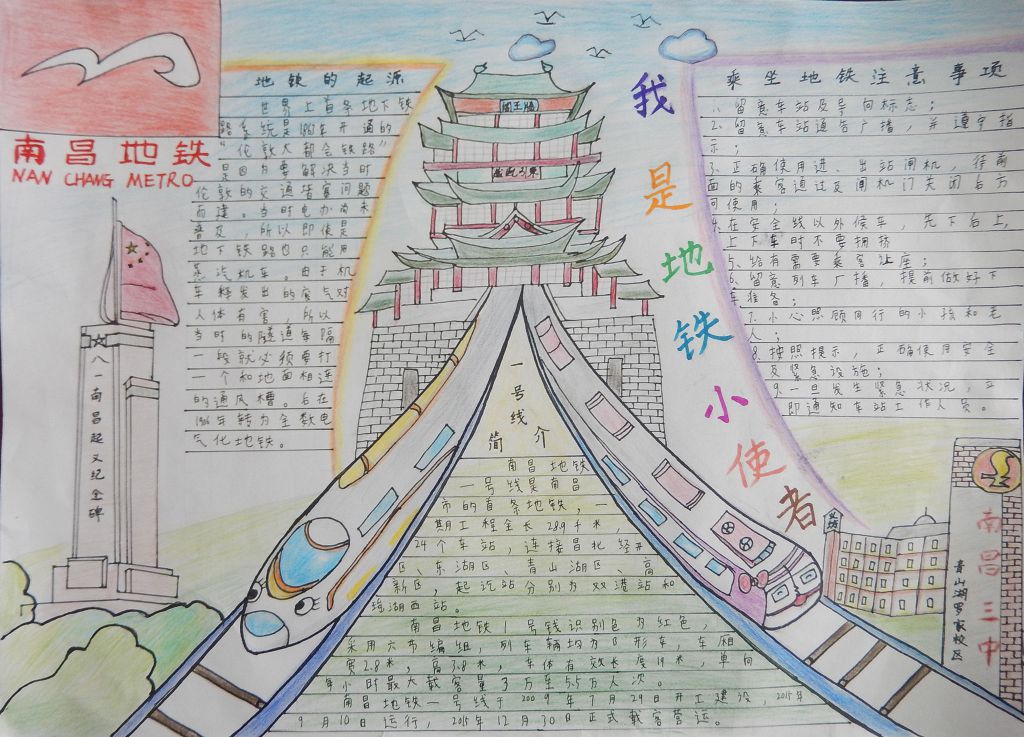 南昌地铁
NAN CHANG METRO
地铁的起源
世界上首条地下铁
路系统是1863年开通的
“伦敦大都会铁路”
是因为要解决当时
伦敦的交通堵塞问题
而建。当时电力尚未
普及,所以即使是
地下铁路也只能用
蒸汽机车。由于机
车释发出的废气对
人体有害,所以
当时的隧道每隔
一段就必须要打
一个和地面相连
的通风槽。后在
1906年转为全数电
气化地铁。
八一南昌起义纪念碑
滕王阁
我是地铁小使者
乘坐地铁注意事项
1、留意车站及导向标志;
2、留意车站通告广播,并遵守指
示;
3、正确使用进、出站闸机,待前
面的乘客通过及闸机门关闭后方
可使用;
4、在安全线以外候车,先下后上,
上下车时不要拥挤
5、给有需要乘客让座;
6、留意列车广播,提前做好下
车准备;
7、小心照顾同行的小孩和老
人;
8、按照提示,正确使用安全
及紧急设施;
9、一旦发生紧急状况,立
即通知车站工作人员。
一号线
简介
南昌地铁
一号线是南昌
市的首条地铁,一
期工程全长28.9千米,
24个车站,连接昌北经开
区、东湖区、青山湖区、高
新区,起讫站分别为双港站和
瑶湖西站。
南昌地铁1号线识别色为红色,
采用六节编组,列车辆均为B形车,车厢
宽2.8米,高3.8米,车体有效长度19米,单向
每小时最大载客量3万至5.5万人次。
南昌地铁一号线于2009年7月29日开工建设,2015年
9月10日运行,2015年12月30日正式载客营运。
南昌三中
青山湖罗家校区